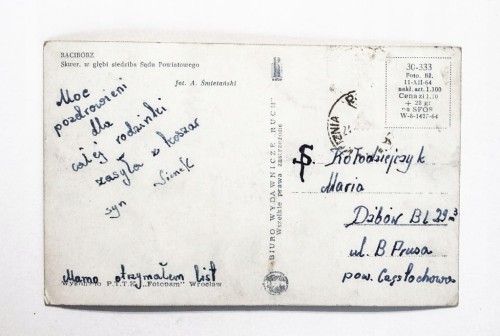 RACIBÓRZ
Skwer, w głębi siedziba Sądu Powiatowego
fot. A. Śmietański
Moc
pozdrowień
dla
całej rodzinki
zasyła z koszar
syn
Mamo otrzymałem list
Wykonało P.T.T.K. „Fotopam" Wrocław
BIURO WYDAWNICZE „RUCH"
Wszelkie prawa zastrzeżone
30-333
Foto. Bł.
11-AII-64
nakł. szt. 1.100
Cena zł 1.20
+ 20 gr
na SFOS
W-6-1427-64
Kołodziejczyk
Maria
Dźbów BL 29 m 3
ul. B Prusa
pow. Częstochowa